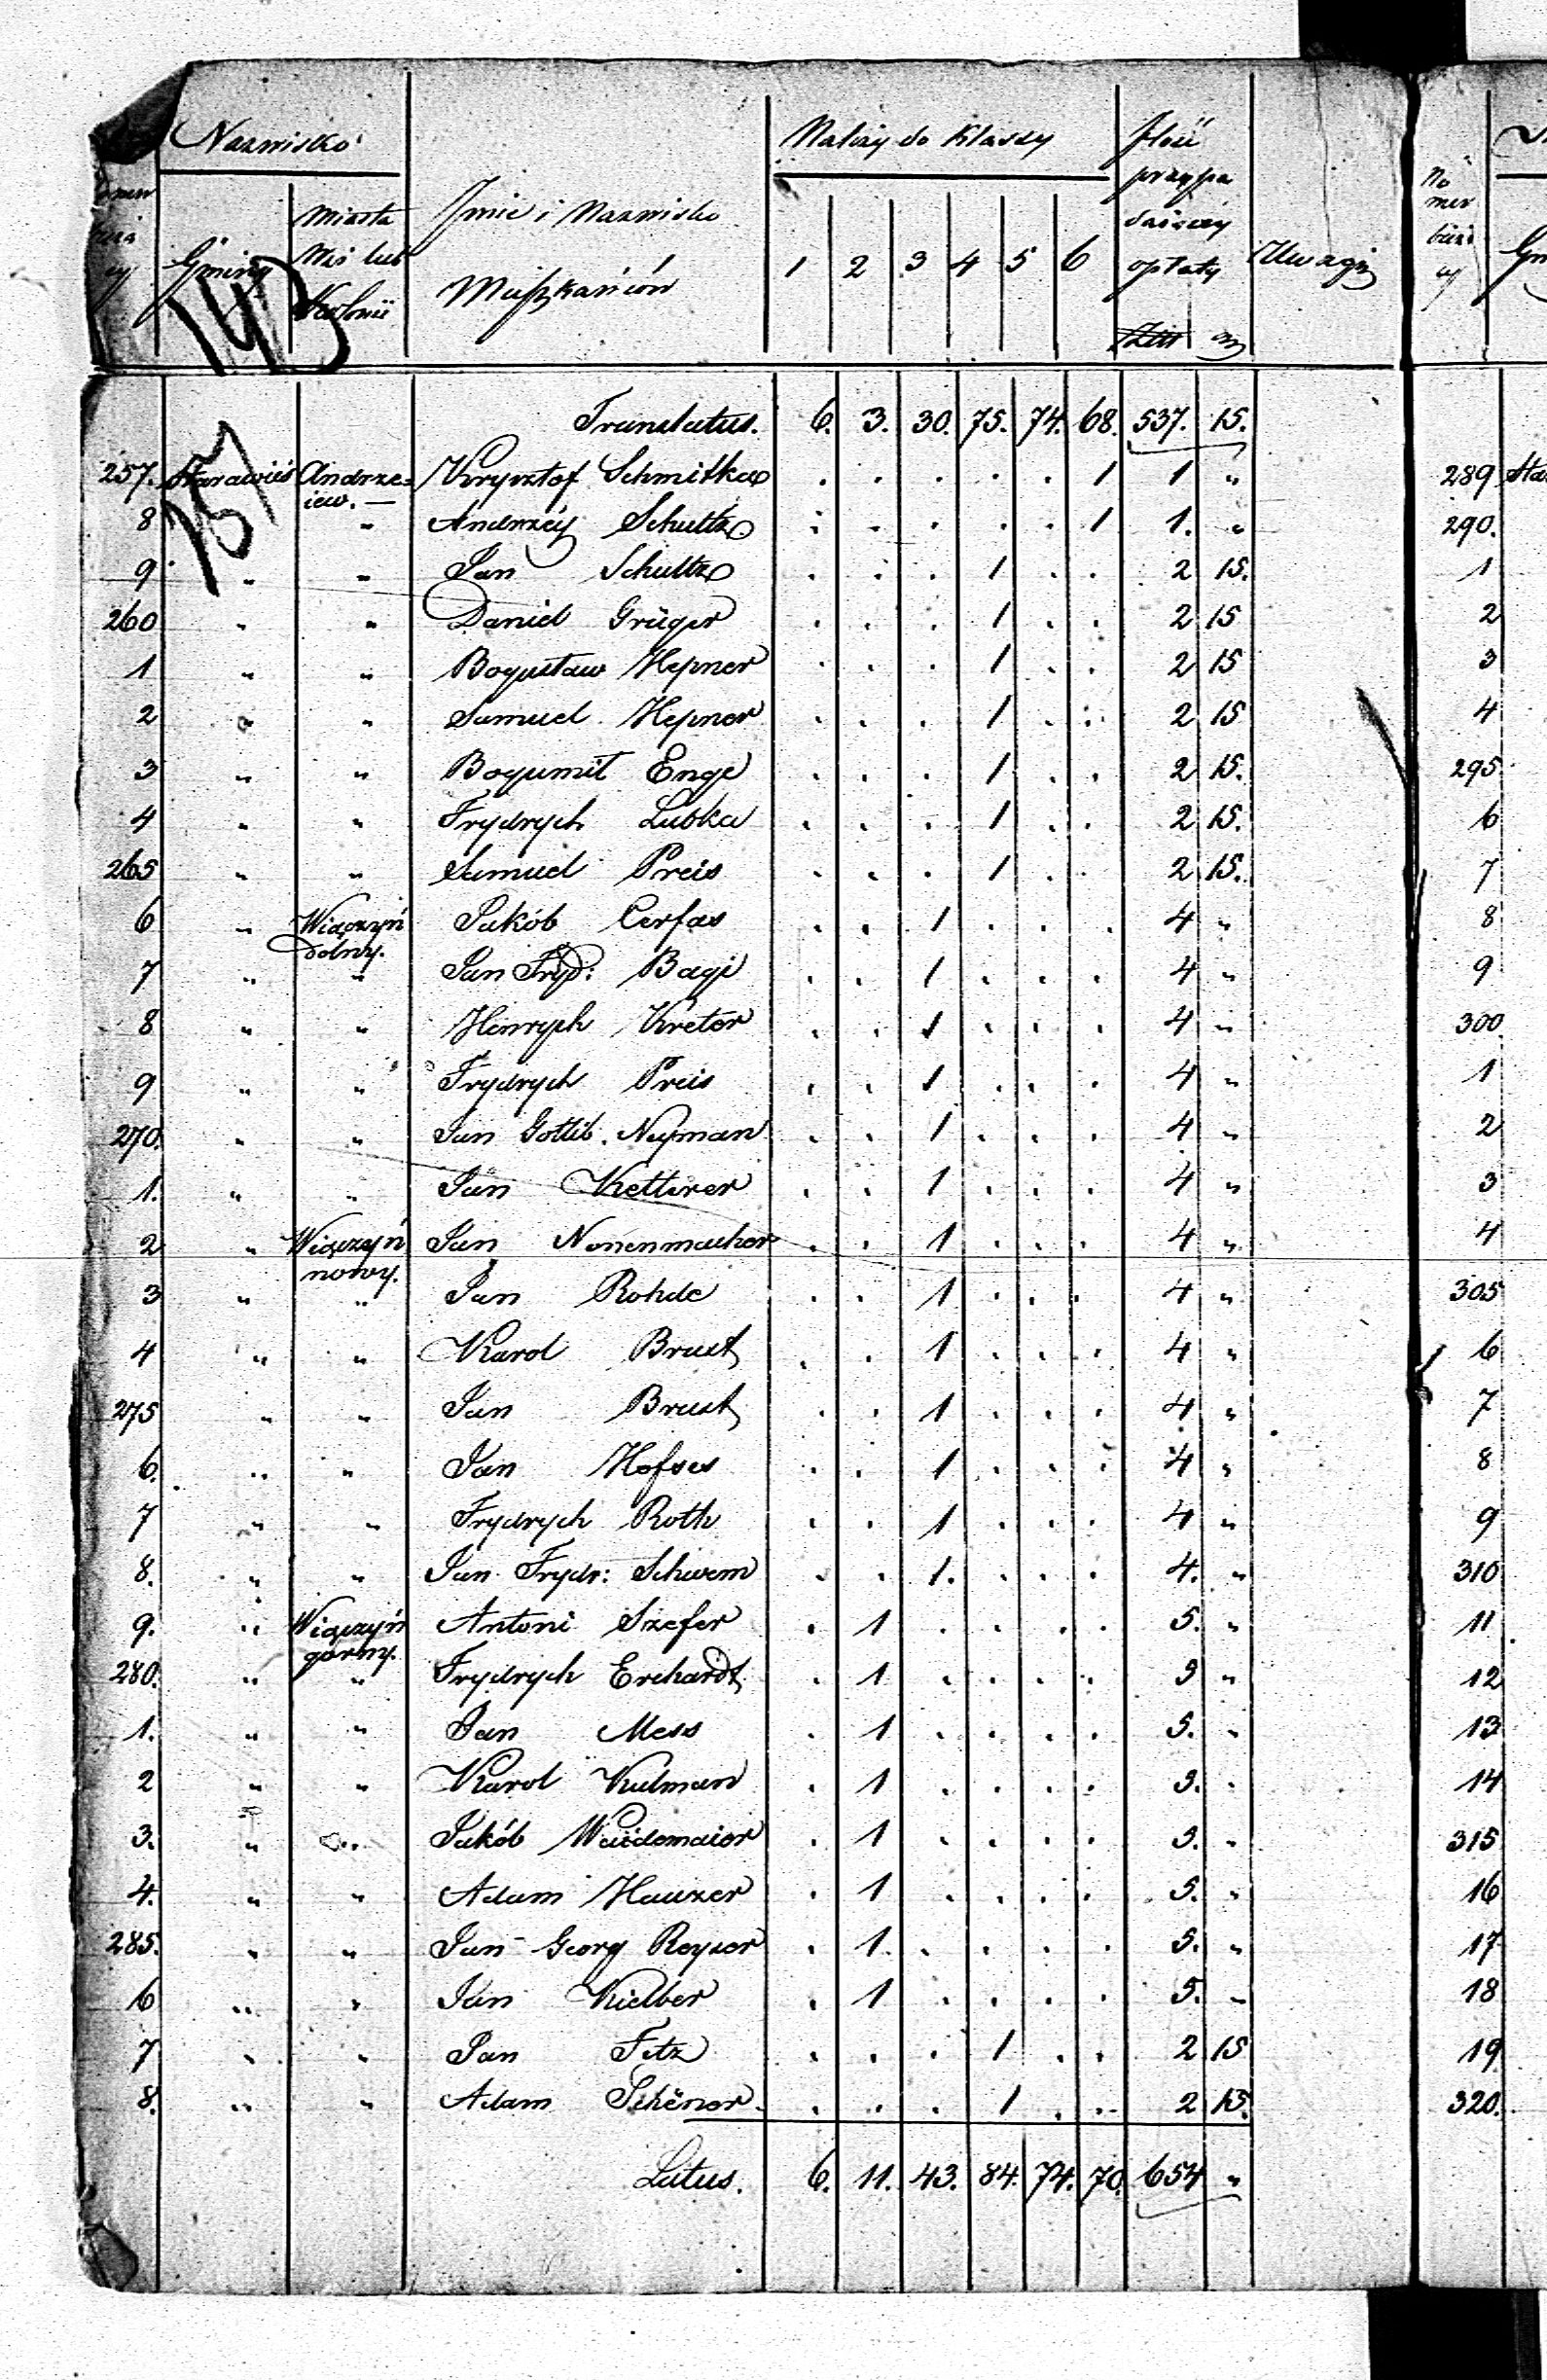 Nazwisko
Należy do Klassy
Gminy
Miasta
Wsi lub
Kolonii
Jmie i Nazwisko
Mieszkańców
1 2 3 4 5 6
Jlość
przypa
daiącey
opłaty
Uwagi
143
151
Translatus. 6. 3. 30. 75. 74. 68. 537. 15.
257. Starawieś Andrze=
iew. — Krysztof Schmitke . . . . . 1 1 "
8 " Andrzéy Schultz . . . . . 1 1. "
9 " " Jan Schultz . . . 1 . . 2 15.
260 " " Daniel Grüger . . . 1 . . 2 15
1 " " Bogusław Hepner . . . 1 . . 2 15
2 " " Samuel Hepner . . . 1 . . 2 15
3 " " Bogumił Enge . . . 1 . . 2 15.
4 " " Frydrych Lubka . . . 1 . . 2 15.
265 " " Samuel Preis . . . 1 . . 2 15.
6 " Wiączyń
Dolny. Jakób Cerfas . . 1 . . . 4 "
7 " " Jan Fryd: Bagi . . 1 . . . 4 "
8 " " Henrych Kreter . . 1 . . . 4 "
9 " " Frydrych Preis . . 1 . . . 4 "
270. " " Jan Gottlib. Neyman . . 1 . . . 4 "
1. " " Jan Ketterer . . 1 . . . 4 "
2 " Wiączyń
nowy. Jan Nonenmacher . . 1 . . . 4 "
3 " " Jan Rohde . . 1 . . . 4 "
4 " " Karol Brust . . 1 . . . 4 "
275 " " Jan Brust . . 1 . . . 4 "
6. " " Jan Hofses . . 1 . . . 4 "
7 " " Frydrych Roth . . 1 . . . 4 "
8. " " Jan Frydr: Schwem . . 1. . . . 4. "
9. " Wiączyń
gorny. Antoni Szefer . 1 . . . . 5. "
280. " " Frydrych Erchardt . 1 . . . . 5 "
1. " " Jan Mess . 1 . . . . 5. "
2 " " Karol Kulman . 1 . . . . 5. "
3. " " Jakób . 1 . . . . 5. "
4. " " Adam Hauzer . 1 . . . . 5. "
285. " " Jan Georg Reyser . 1. . . . . 5. "
6 " " Jan Kielber . 1 . . . . 5. "
7 " " Jan Fetz . . . 1 . . 2 15
8. " " Adam Schëner . . . 1 . . 2 15.
Latus. 6. 11. 43. 84. 74. 70. 654 "
No
mer
bieżą
cy
289 Sta
290.
1
2
3
4
295.
6
7
8
9
300
1
2
3
4
305
6
7
8
9
310
11
12
13
14
315
16
17
18
19
320.